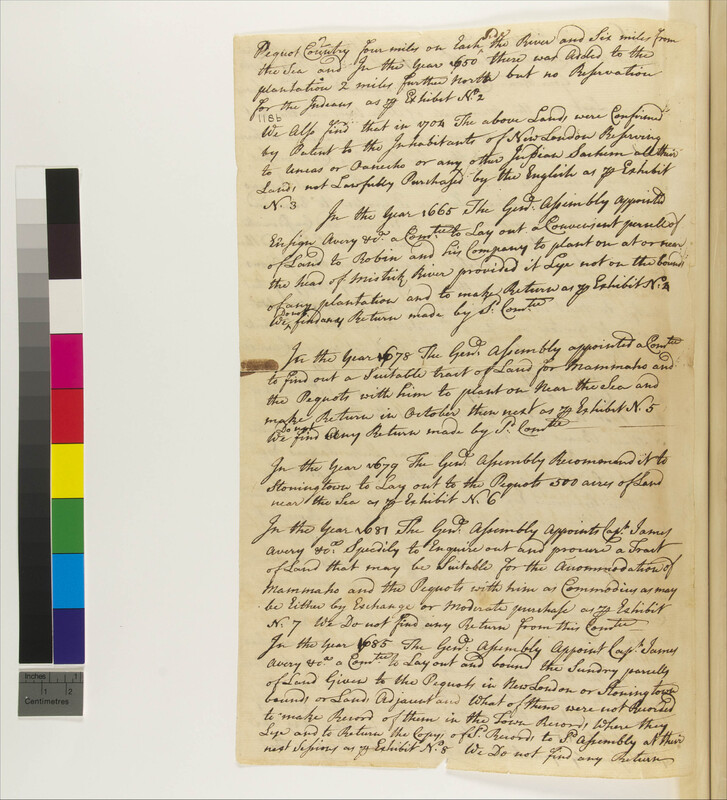 Pequot Country four miles on Each Sd. the River and Six miles from
the Sea and In the Year 1650 there was Added to the
plantation 2 miles further North but no Reservation
for the Indians as pr Exhibit No. 2
1186
We Also find that in 1704 The above Lands were Confirmed
by Patent to the Inhabitants of New London Reserving
to Uncas or Oanecho or any other Indian Sachem all their
Lands not Lawfully Purchased by the English as pr Exhibit
N. 3
In the Year 1665 The Genll. Assembly appointed
Ensign Avery &c. a Comtee to Lay out a Convenient parcele of
of Land to Robin and his Company to plant on at or near
the head of Mistick River provided it Lye not on the bounds
of any plantation and to make Return as pr Exhibit No. 4
We Do not find any Return made by Sd. Comtee
In the Year 1678 The Genll. Assembly appointed a Comtee
to find out a Suitable tract of Land for Mammaho and
the Pequots with him to plant on Near the Sea and
make Return in October then next as pr Exhibit N. 5
We Do not find Any Return made by Sd. Comtee
In the Year 1679 The Genll. Assembly Recommend it to
Stoningtown to Lay out to the Pequots 500 acres of Land
near the Sea as pr Exhibit N. 6
In the Year 1681 The Genll. Assembly Appoints Capt. James
Avery &c. Speedily to Enquire out and procure a Tract
of Land that may be Suitable for the Acommodation of
Mammaho and the Pequots with him as Commodius as may
be Either by Exchange or Moderate purchase as pr Exhibit
N. 7 We Do not find any Return from this Comtee
In the Year 1685 The Genll. Assembly Appoint Capt. James
Avery &c a Comtee to Lay out and bound the Sundry parcells
of Land Given to the Pequots in New London or Stoningtown
bounds or Land Adjacent and What of them were not Recorded
to make Record of them in the Town Records Where they
Lye and to Return the Copys of Sd. Records to Sd. Assembly at their
next Sessions as pr Exhibit No. 8 We Do not find any Return
Inches
1
2
Centimetres